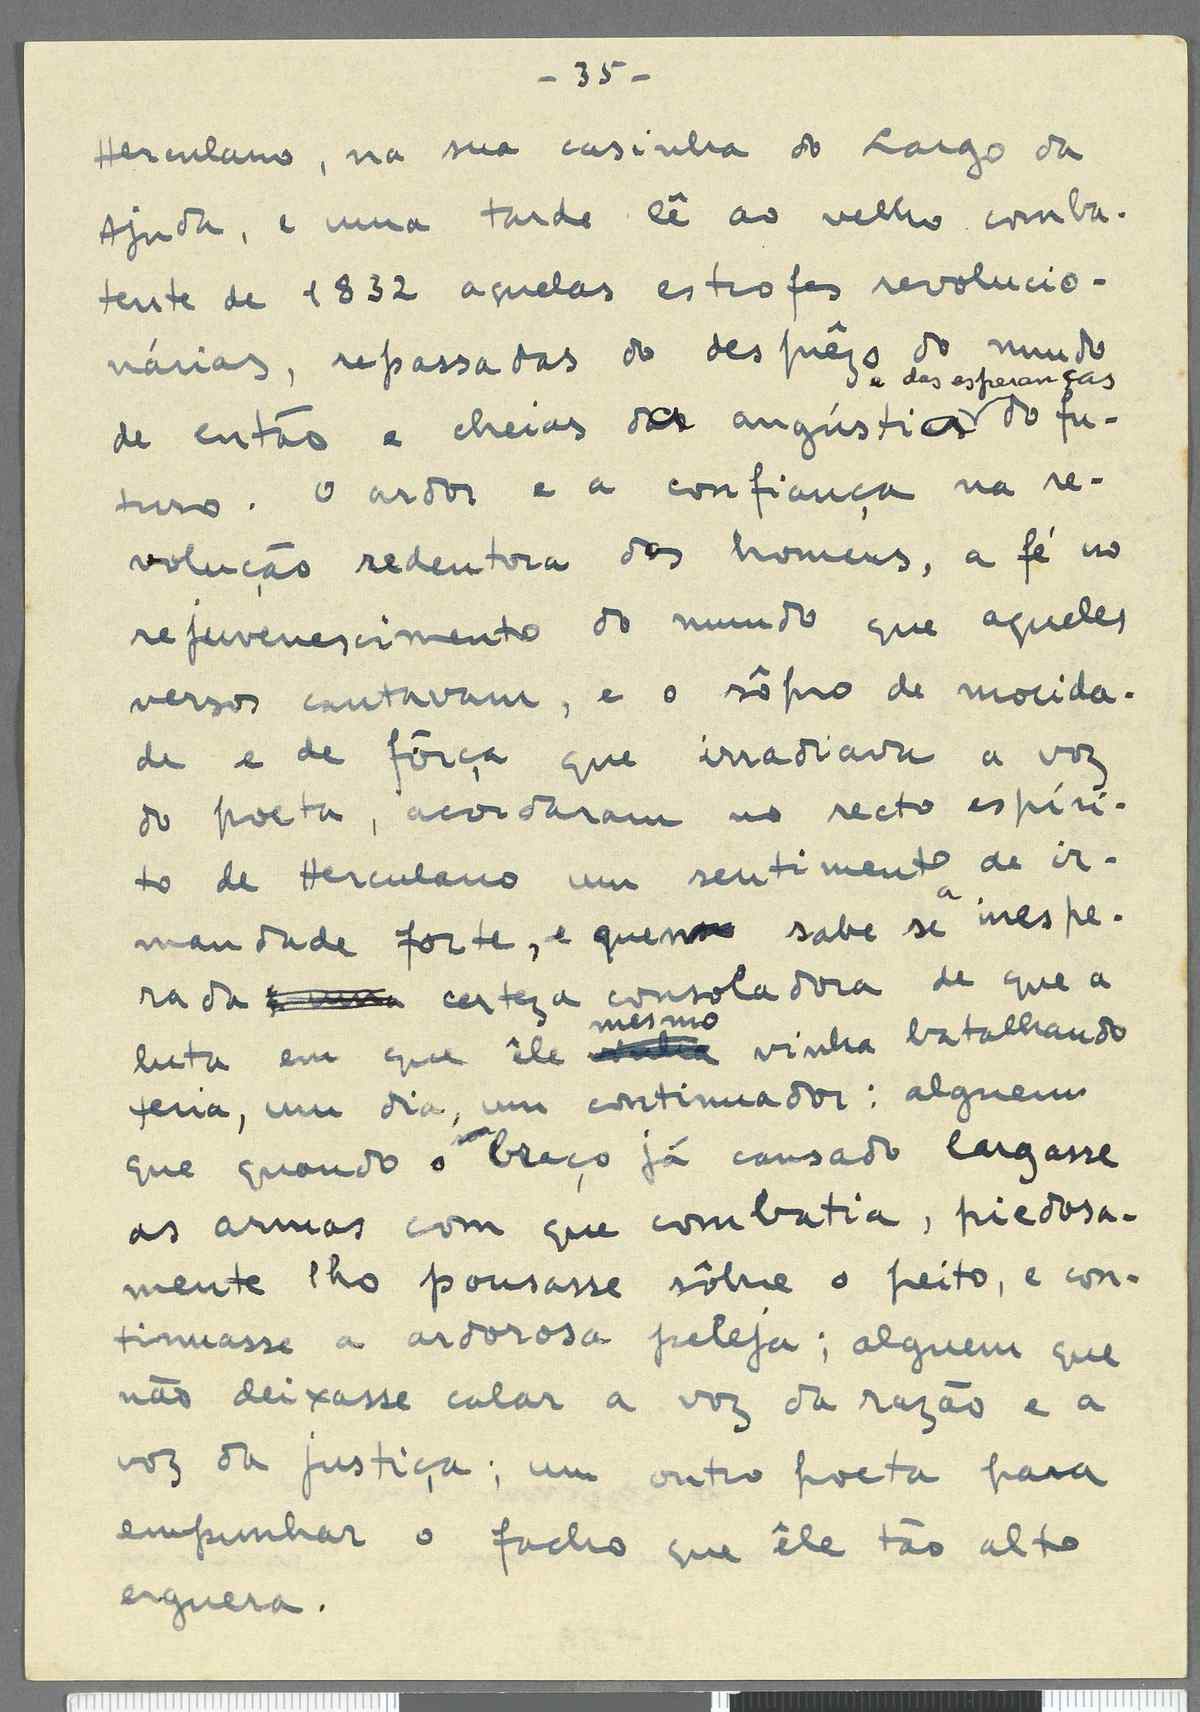 - 35 -
Herculano, na sua casinha do Largo da
Ajuda, e uma tarde lê ao velho comba-
tente de 1832 aquelas estrofes revolucio-
nárias, repassadas do desprêzo do mundo
e das esperanças
de então e cheias da angústia do fu-
turo. O ardor e a confiança na re-
volução redentora dos homens, a fé no
rejuvenescimento do mundo que aqueles
versos cantavam, e o sôpro de mocida-
de e de fôrça que irradiava a voz
do poeta, acordaram no recto espíri-
to de Herculano um sentimento de ir-
mandade forte, e quem sabe se a inespe-
rada e uma certeza consoladora de que a
mesmo
luta em que êle vinha batalhando
teria, um dia, um continuador: alguem
que quando o seu braço já cansado largasse
as armas com que combatia, piedosa-
mente lho pousasse sôbre o peito, e con-
tinuasse a ardorosa peleja; alguem que
não deixasse calar a voz da razão e a
voz da justiça; um outro poeta para
empunhar o facho que êle tão alto
erguera.